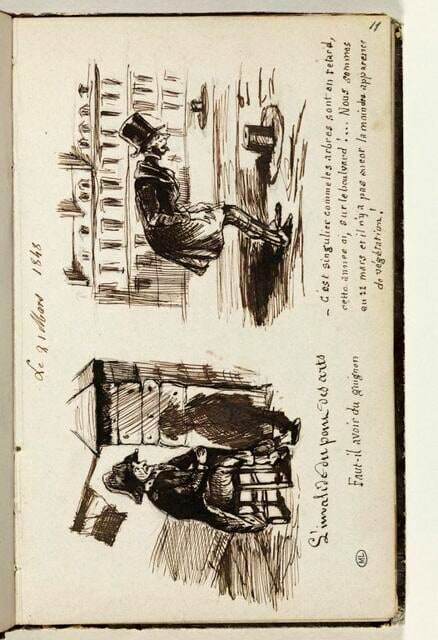 11
Le 21 Mars 1848
— C'est singulier comme les arbres sont en retard,
cette année ci, sur le boulevard!.... Nous sommes
au 22 mars et il n'y a pas encor la moindre apparence
de végétation!
L'invalide du pont des arts
Faut-il avoir du guignon
ML